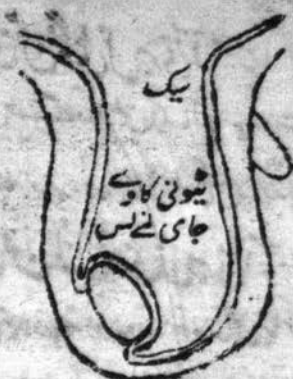 سیک
ٹیونی کاوے
جای نے لس